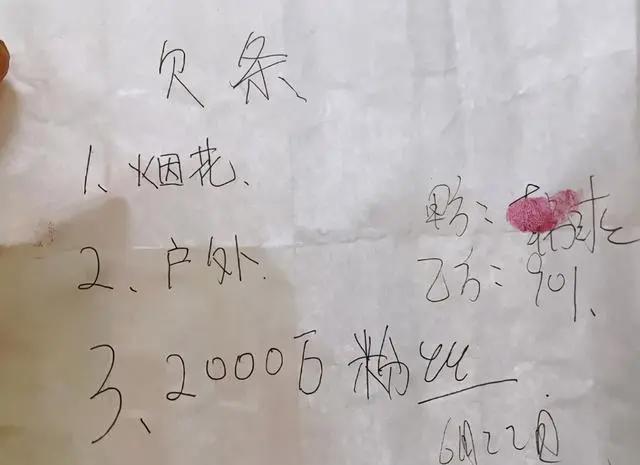 欠条、
1、烟花、
甲方：
2、户外
乙方：901、
3、2000百粉丝
6月22日